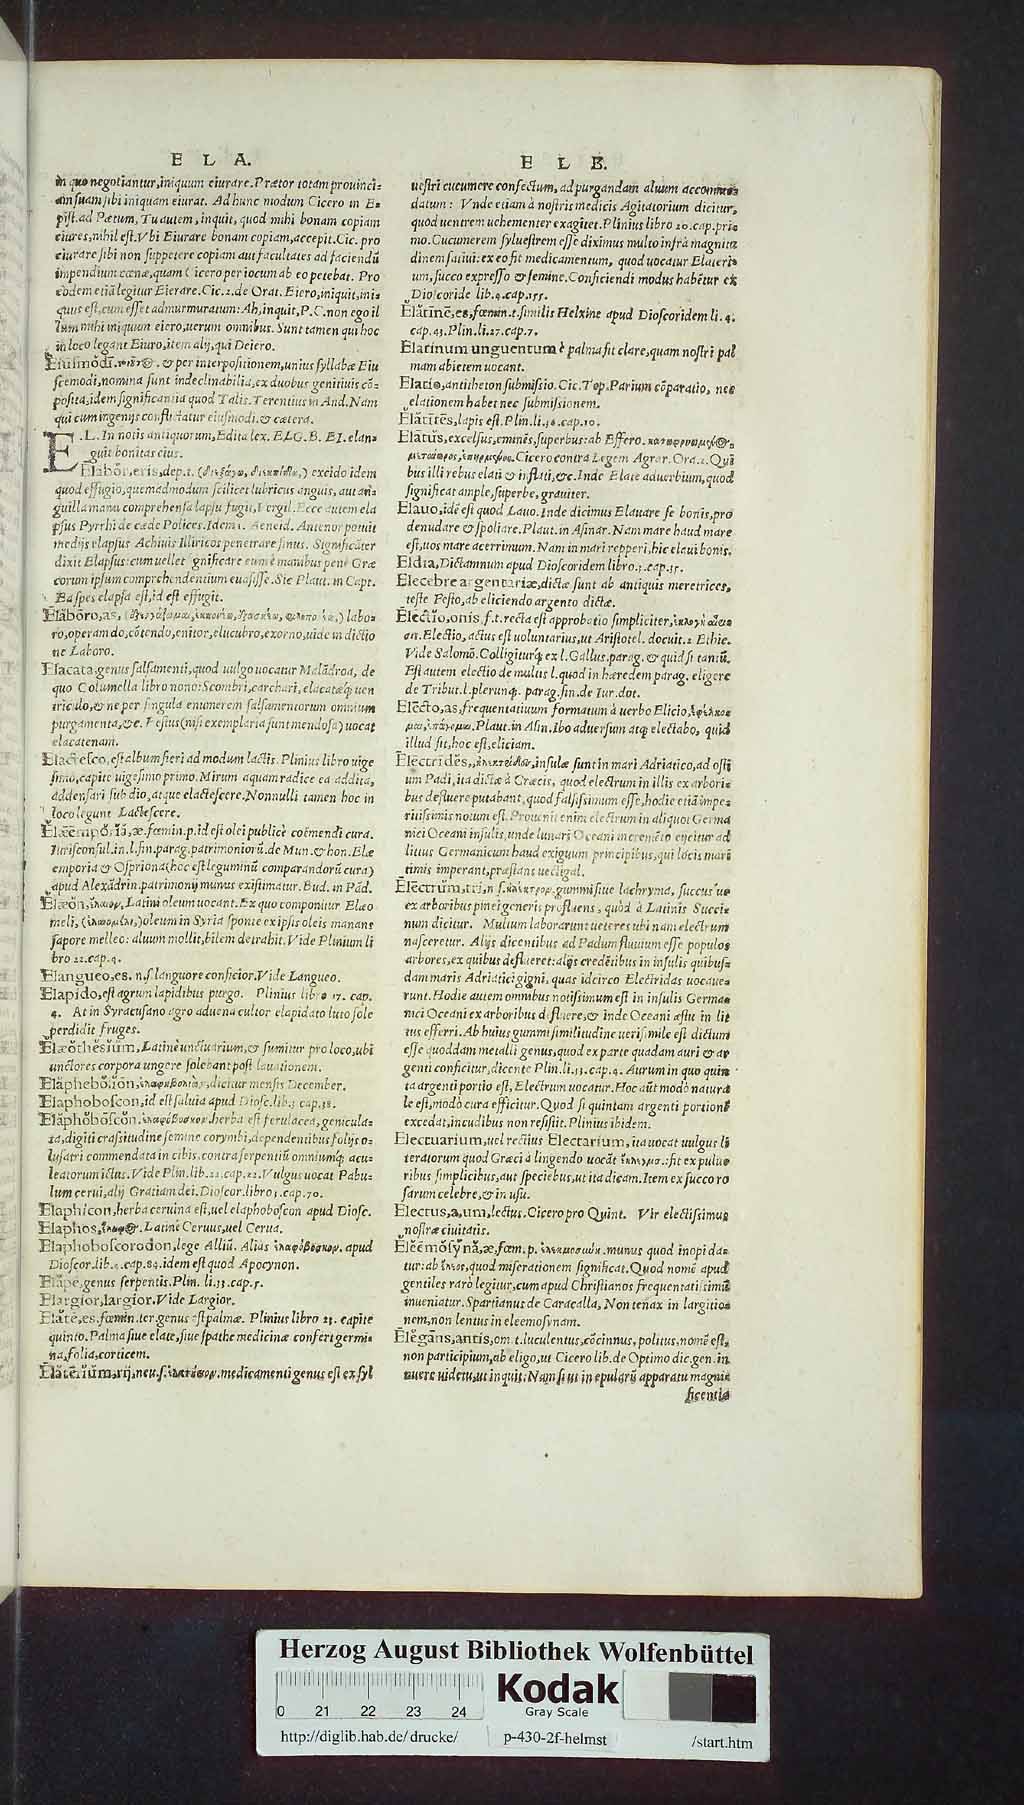 E L A.
in quo negotiantur, iniquum eiurare. Prætor totam prouinci-
am suam sibi iniquam eiurat. Ad hunc modum Cicero in E-
pist. ad Pætum, Tu autem, inquit, quod mihi bonam copiam
eiures, nihil est. Vbi Eiurare bonam copiam, accepit. Cic. pro
eiurare sibi non suppetere copiam aut facultates ad faciendũ
impendium cœnæ, quam Cicero per iocum ab eo petebat. Pro
eodem etiã legitur Eierare. Cic. 2. de Orat. Eiero, iniquit, ini-
quus est, cum esset admurmuratum: Ah, inquit, P. C. non ego il
lum mihi iniquum eiero, uerum omnibus. Sunt tamen qui hoc
in loco legant Eiuro, item alij, qui Deiero.
Eiusmodi. & per interpositionem, unius syllabæ Eiu
scemodi, nomina sunt indeclinabilia, ex duobus genitiuis cõ-
posita, idem significantia quod Talis. Terentius in And. Nam
qui cum ingenijs conflictatur eiusmodi, & cætera.
E. L. In notis antiquorum, Edita lex. ELG. B. EI. elan-
guit bonitas eius.
Elabor, eris, dep. t. excido idem
quod effugio, quemadmodum scilicet lubricus anguis, aut an-
guilla manu comprehensa lapsu fugit, Vergil. Ecce autem ela
psus Pyrrhi de cæde Polites. Idem 1. Aeneid. Antenor potuit
medijs elapsus Achiuis Illiricos penetrare sinus. Significãter
dixit Elapsus: cum uellet significare eum è manibus penè Græ
corum ipsum comprehendentium euasisse. Sic Plaut. in Capt.
Ea spes elapsa est, id est effugit.
Elaboro, as, labo-
ro, operam do, cõtendo, enitor, elucubro, exorno, uide in dictio
ne Laboro.
Elacata, genus salsamenti, quod uulgo uocatur Malãdroa, de
quo Columella libro nono: Scombri, carchari, elacatæq́; uen
triculo, & ne per singula enumerem salsamentorum omnium
purgamenta, &c. Festus (nisi exemplaria sunt mendosa) uocat
elacatenam.
Elactesco, est album fieri ad modum lactis. Plinius libro uige
simo, capite uigesimoprimo. Mirum aquam radice ea addita,
addensari sub dio, atque elactescere. Nonnulli tamen hoc in
loco legunt Lactescere.
Elæemporia, æ. fœmin. p. id est olei publicè coëmendi cura.
Iurisconsul. in. l. fin. parag. patrimoniorũ. de Mun. & hon. Elæ
emporia & Ospriona (hoc est leguminũ comparandorũ cura)
apud Alexãdrin. patrimonij munus existimatur. Bud. in Pãd.
Elæon, ἔλαιον, Latini oleum uocant. Ex quo componitur Elæo
meli, (ἐλαιομέλι,) oleum in Syria sponte ex ipsis oleis manans
sapore melleo: aluum mollit, bilem detrahit. Vide Plinium li
bro 22. cap. 4.
Elangueo, es. n. s. languore conficior. Vide Langueo.
Elapido, est agrum lapidibus purgo. Plinius libro 17. cap.
4. At in Syracusano agro aduena cultor elapidato luto sole
perdidit fruges.
Elæothesium, Latinè unctuarium, & sumitur pro loco, ubi
unctores corpora ungere solebant post lauationem.
Elaphebolion, ἐλαφηβολιὼν, dicitur mensis December.
Elaphoboscon, id est saluia apud Diosc. lib. 3 cap. 38.
Elaphoboscon. ἐλαφόβοσκον. herba est ferulacea, genicula-
ta, digiti crassitudine semine corymbi, dependentibus folijs o-
lusatri commendata in cibis, contra serpentiũ omniumq́; acu-
leatorum ictus. Vide Plin. lib. 22. cap. 22. Vulgus uocat Pabu-
lum cerui, alij Gratiam dei. Dioscor. libro 3. cap. 70.
Elaphicon, herba ceruina est, uel elaphoboscon apud Diosc.
Elaphos, ἔλαφος. Latinè Ceruus, uel Cerua.
Elaphoboscorodon, lege Alliũ. Aliàs ἐλαφόβοσκον. apud
Dioscor. lib. 4. cap. 84. idem est quod Apocynon.
Elape, genus serpentis. Plin. li. 33. cap. 5.
Elargior, largior. Vide Largior.
Elate, es. fœmin. ter. genus est palmæ. Plinius libro 23. capite
quinto. Palma siue elate, siue spathe medicinæ confert germi-
na, folia, corticem.
Elaterium, rij, neu. s. ἐλατήριον. medicamenti genus est ex syl
E L E.
uestri cucumere confectum, ad purgandam aluum accommo-
datum: Vnde etiam à nostris medicis Agitatorium dicitur,
quod uentrem uehementer exagitet. Plinius libro 20. cap. pri-
mo. Cucumerem syluestrem esse diximus multo infrà magnitu
dinem satiui: ex eo fit medicamentum, quod uocatur Elateri-
um, succo expresso & semine. Conficiendi modus habetur ex
Dioscoride lib. 4. cap. 155.
Elatine, es, fœmin. t. similis Helxine apud Dioscoridem li. 4.
cap. 43. Plin. li. 27. cap. 7.
Elatinum unguentum è palma fit clare, quam nostri pal
mam abietem uocant.
Elatio, antitheton submissio. Cic. Top. Parium cõparatio, nec
elationem habet nec submissionem.
Elatites, lapis est. Plin. li. 36. cap. 20.
Elatus, excelsus, eminẽs, superbus: ab Effero.
Cicero contra Legem Agrar. Ora. 2. Qui
bus illi rebus elati & inflati, &c. Inde Elate aduerbium, quod
significat ample, superbe, grauiter.
Elauo, idẽ est quod Lauo. Inde dicimus Elauare se bonis, pro
denudare & spoliare. Plaut. in Asinar. Nam mare haud mare
est, uos mare acerrimum. Nam in mari repperi, hic elaui bonis.
Eldia, Dictamnum apud Dioscoridem libro. 3. cap. 35.
Elecebre argentariæ, dictæ sunt ab antiquis meretrices,
teste Festo, ab eliciendo argento dictæ.
Electio, onis, f. t. recta est approbatio simpliciter,
on. Electio, actus est voluntarius, ut Aristotel. docuit. 2 Ethic.
Vide Salomõ. Colligiturq́; ex l. Gallus. parag. & quid si tantũ.
Est autem electio de multis l. quod in hæredem parag. eligere
de Tribut. l. plerunq́;. parag. fin. de Iur. dot.
Electo, as, frequentatiuum formatum à uerbo Elicio,
Plaut. in Asin. Ibo aduersum atq; electabo, quid
illud sit, hoc est, eliciam.
Electrides, ἠλεκτρίδες, insulæ sunt in mari Adriatico, ad osti
um Padi, ita dictæ à Græcis, quod electrum in illis ex arbori-
bus defluere putabant, quod falsissimum esse, hodie etiã impe-
ritissimis notum est. Prouenit enim electrum in aliquot Germa
nici Oceani insulis, unde lunari Oceani incremẽto eijcitur ad
littus Germanicum haud exiguum principibus, qui locis mari
timis imperant, præstans uectigal.
Electrum, tri, n s. ἤλεκτρον. gummi siue lachryma, succus ue
ex arboribus pinei generis profluens, quòd à Latinis Succi-
num dicitur. Multum laborarunt ueteres ubi nam electrum
nasceretur. Alijs dicentibus ad Padum fluuium esse populos
arbores, ex quibus deflueret: alijs credẽtibus in insulis quibus-
dam maris Adriatici gigni, quas idcirco Electridas uocaue-
runt. Hodie autem omnibus notissimum est in insulis Germa-
nici Oceani ex arboribus defluere, & inde Oceani æstu in lit
tus efferri. Ab huius gummi similiudine ueri simile est dictum
esse quoddam metalli genus, quod ex parte quadam auri & ar
genti conficitur, dicente Plin. li. 33. cap. 4. Aurum in quo quin
ta argenti portio est, Electrum uocatur. Hoc aũt modò natura
le est, modò cura efficitur. Quod si quintam argenti portionẽ
excedat, incudibus non resistit. Plinius ibidem.
Electuarium, uel rectius Electarium, ita uocat uulgus li
teratorum quod Græci à lingendo uocãt ἔκλειγμα.: fit ex pulue
ribus simplicibus, aut speciebus, ut ita dicam. Item ex succo ro
sarum celebre, & in usu.
Electus, a, um, lectus. Cicero pro Quint. Vir electissimus
nostræ ciuitatis.
Eleemosyna, æ, fœm. p. ἐλεημοσύνη. munus quod inopi da-
tur: ab ἔλεος, quod miserationem significat. Quod nomẽ apud
gentiles rarò legitur, cum apud Christianos frequentatissimũ
inueniatur. Spartianus de Caracalla, Non tenax in largitio-
nem, non lentus in eleemosynam.
Elegans, antis, om. t. luculentus, cõcinnus, politus, nomẽ est,
non participium, ab eligo, ut Cicero lib. de Optimo dic. gen. in
nuere uidetur, ut inquit: Nam si ut in epularũ apparatu magni-
ficentia
Herzog August Bibliothek Wolfenbüttel
0 21 22 23 24
Kodak
Gray Scale
http://diglib.hab.de/drucke/ p-430-2f-helmst /start.htm